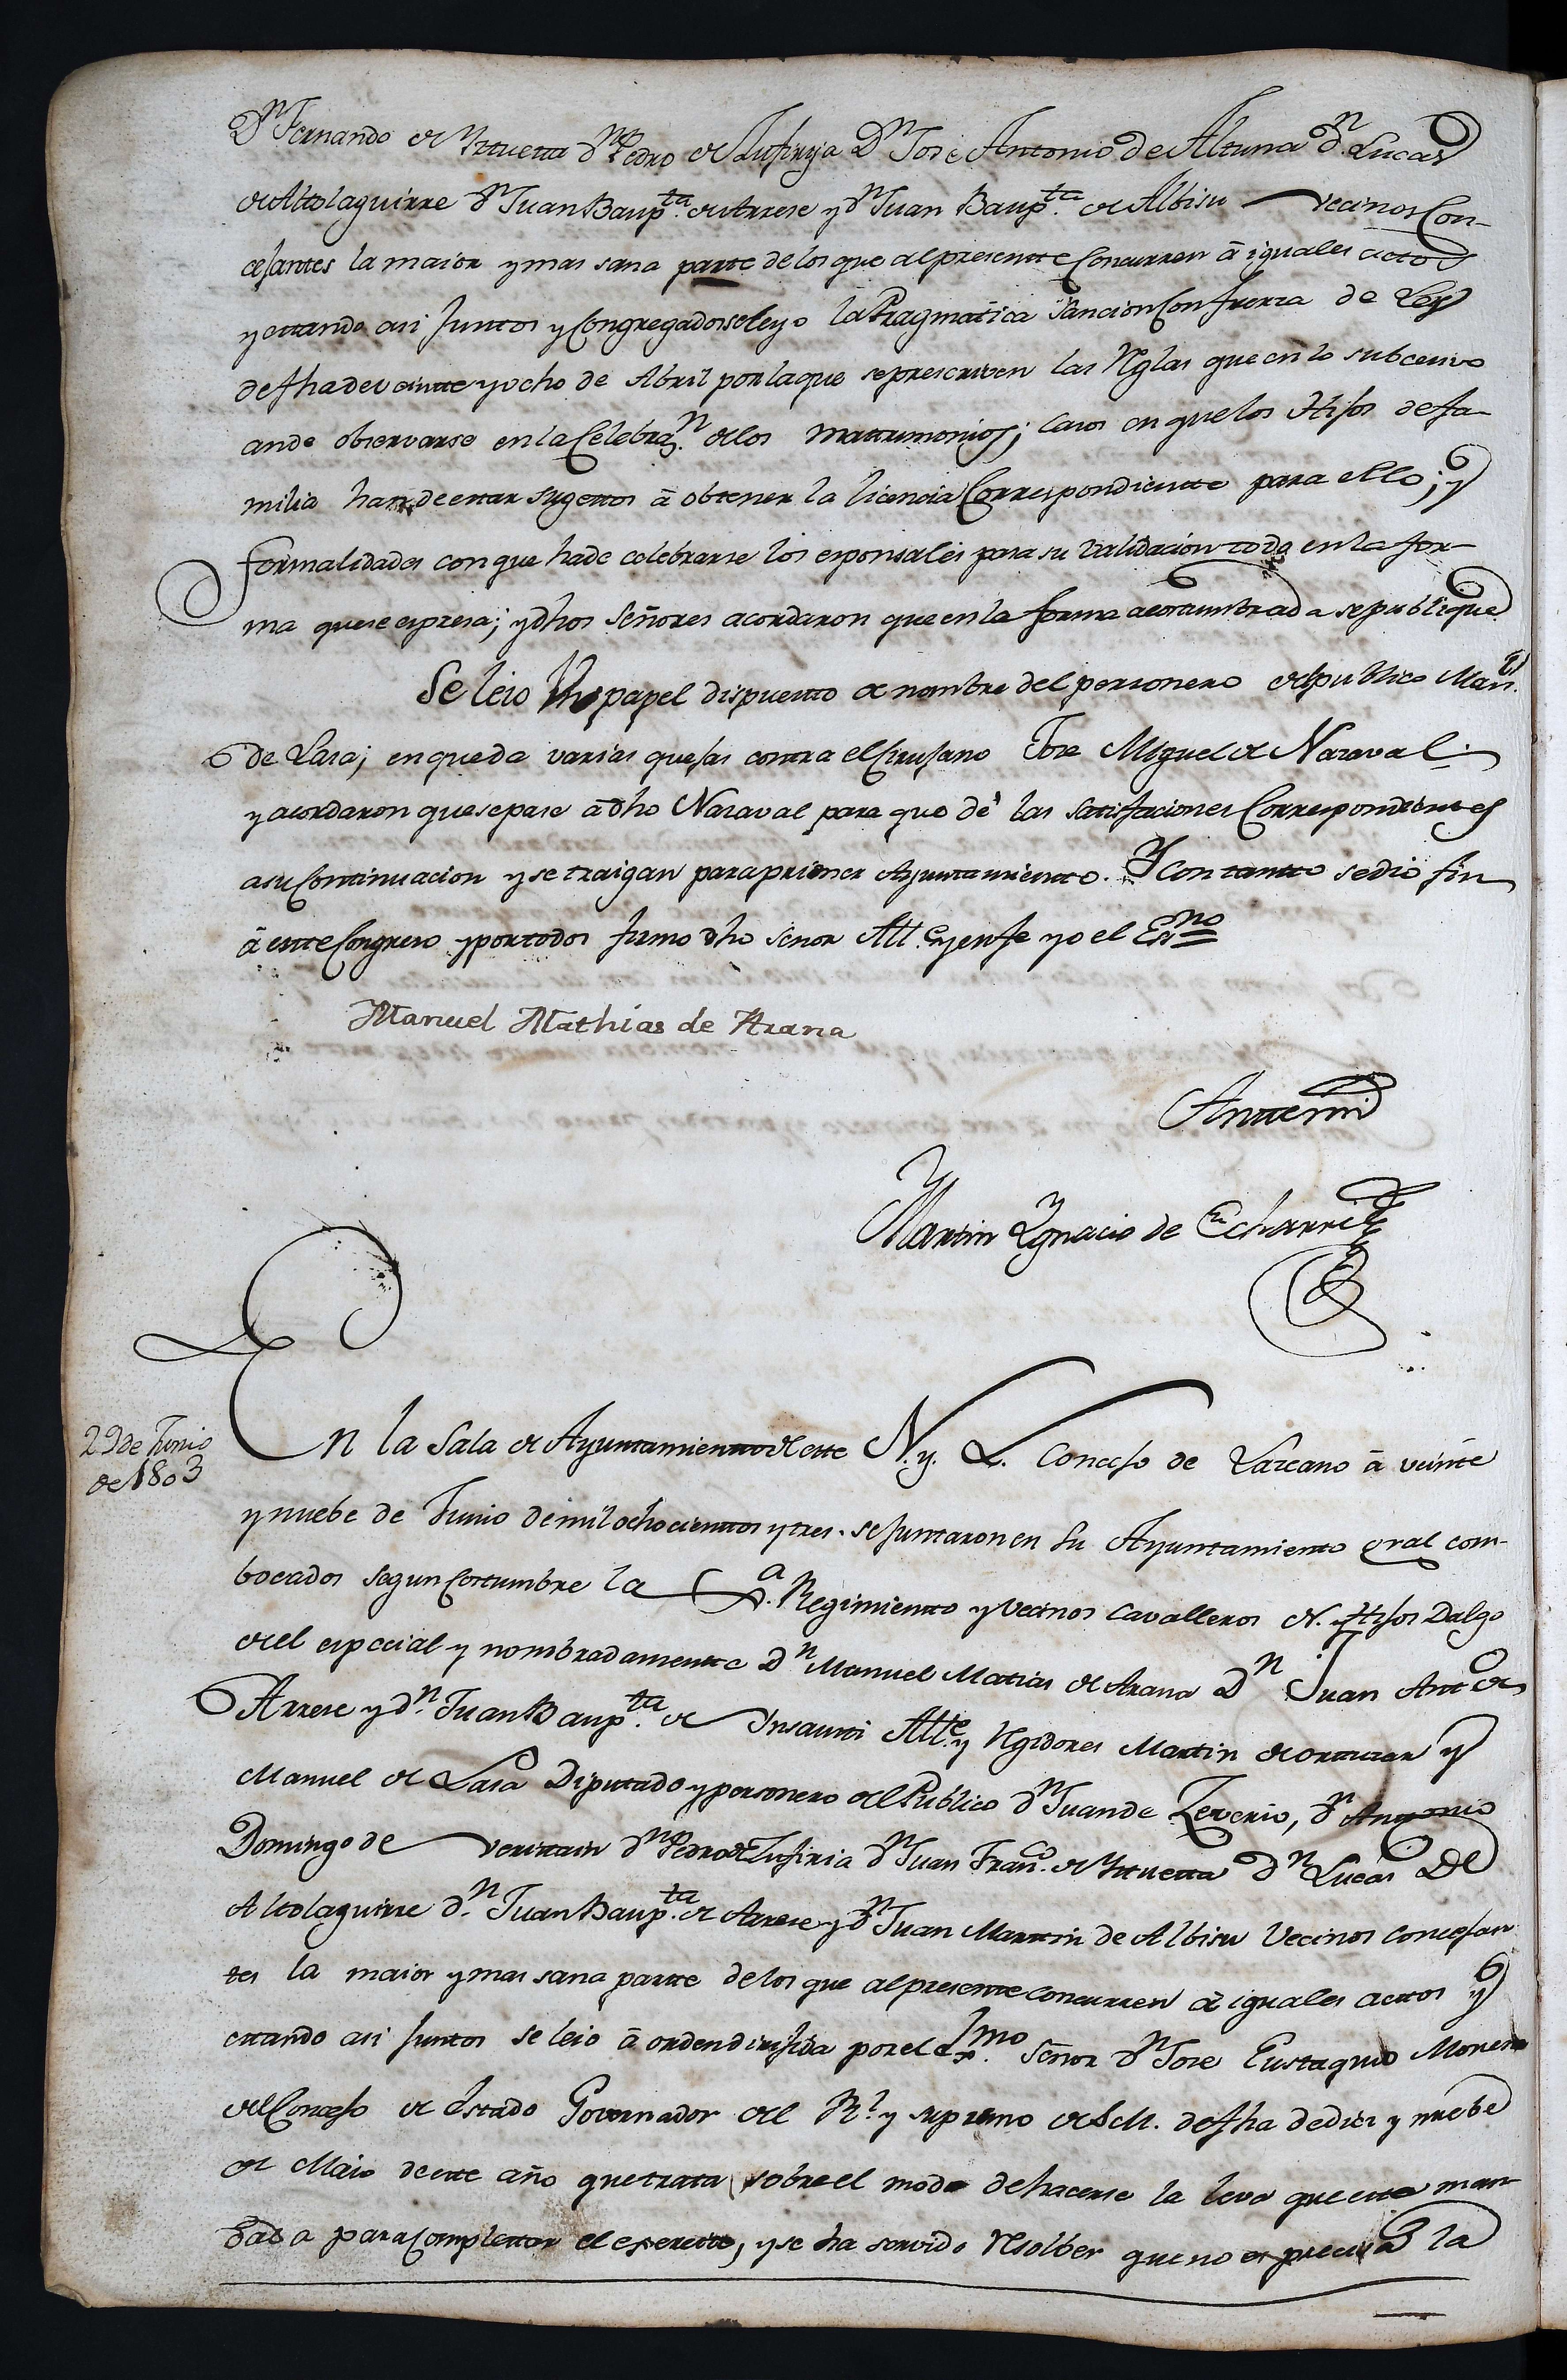 Dn Fernando de Yttuetta dn Pedro de Lusirija Dn Jose Antonio de Altuna dn Lucas
de Altolaguirre dn Juan Baupta. de Arrese y dn Juan Baupta. de Albisu vecinos Con-
cejantes la maior y mas sana parte de los que al presentte Concurren á iguales actos
y ettando asi Junttos y Congregados se leyo la Pragmática Sancion Con fuerza de Ley
de fha de veintte y ocho de Abril por la que se prescriven las Reglas que en lo subcesivo
an de observarse en la Celebrazn. de los Mattrimonios; casos en que los Hijos de fa-
milia han de esttar sugettos á obtener la licencia Correspondientte para ello; y
formalidades con que ha de celebrarse los esponsales para su validacion todo en la for-
ma que se espresa; y dhos Señores acordaron que en la forma acostumbrada se publique
Se leio Vn papel dispuestto a nombre del personero del publico Manl.
de Lasa; en que da varias quejas contra el Cirujano Jose Miguel de Nazaval
y acordaron que se pase á dho Nazaval para que dé las satisfaciones Correspondientes
a su Continuacion y se traigan para primer Ayuntamientto. Y con tantto se dio fin
á estte Congreso y por todos firmo dho señor Alle. y en fe yo el Esno
Manuel Mathias de Arana
Anttemi
Martin Ygnacio de Echarri
29 de Junio
de 1803
En la Sala de Ayuntamientto de este N. y. L. Concejo de Lazcano á veinte
y nuebe de Junio de mil ochocienttos y tres. se juntaron en su Ayuntamiento gral com-
bocados segun Costumbre la Xa. Regimientto y vecinos Cavalleros N. Hijos Dalgo
de el especial y nombradamentte Dn Manuel Matias de Arana Dn Juan Anto de
Arrese y dn. Juan Baupta. de Ynsausti Alle. y Regidores Martin de Orttuzar y
Manuel de Lasa Diputado y personero del Publico dn Juan de Zeverio, dn Antonio
Domingo de Verittain dn Pedro de Lusiria dn Juan Franco. de Yttuetta dn Lucas De
Altolaguirre dn. Juan Baupta. de Arrese y dn Juan Marttin de Albisu Vecinos concejan
tes la maior y mas sana partte de los que al presentte concurren á iguales acttos y
ettando asi Junttos se leio á orden dirijida por el Exmo. Señor dn Jose Eustaquio Moreno
del Concejo de Estado Governador del Rl. y supremo de S.M. de fha de diez y nuebe
de Maio de estte año que trata sobre el modo de hacerse la leva que estta man
dada para Complettar el exercitto, y se ha servido Resolber que no es precisa la